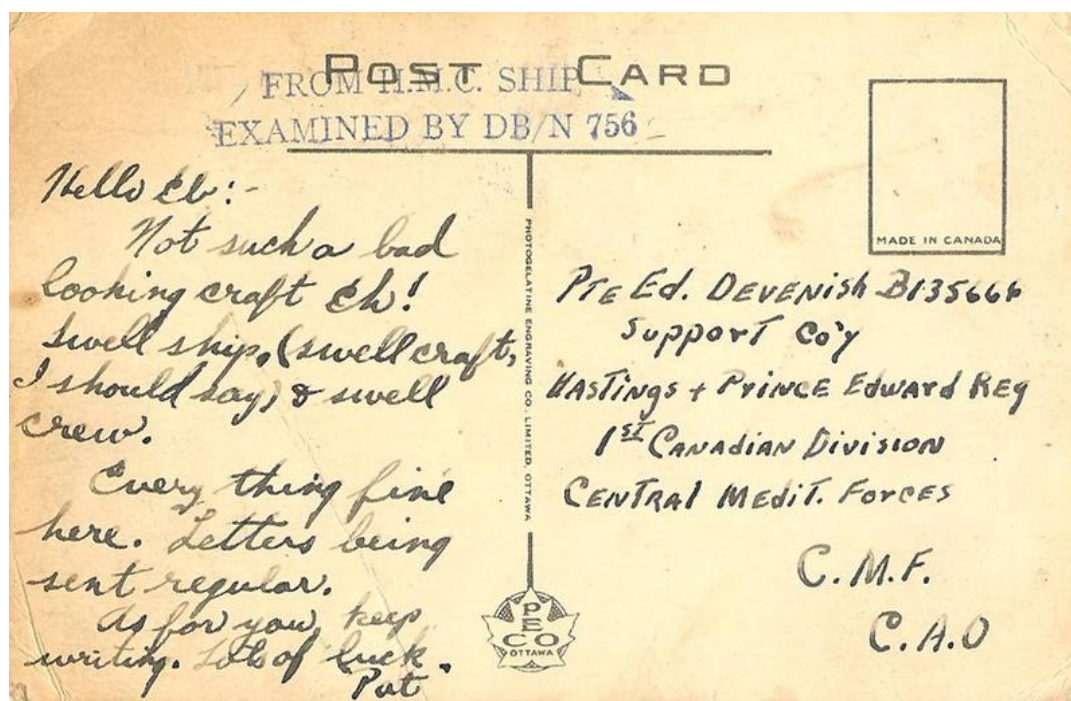 POST CARD
FROM H.M.C. SHIP
EXAMINED BY DB/N 756
Hello Eb:-
Not such a bad
looking craft Eh!
Swell ship, (swell craft,
I should say) & swell
crew.
Every thing fine
here. Letters being
sent regular.
As for you, keep
writing. Lots of luck.
Pat
PHOTOGELATINE ENGRAVING CO., LIMITED, OTTAWA
PECO
OTTAWA
MADE IN CANADA
PTE Ed. DEVENISH B135666
Support Co'y
HASTINGS + PRINCE EDWARD REG
1ST CANADIAN DIVISION
CENTRAL MEDIT. FORCES
C.M.F.
C.A.O